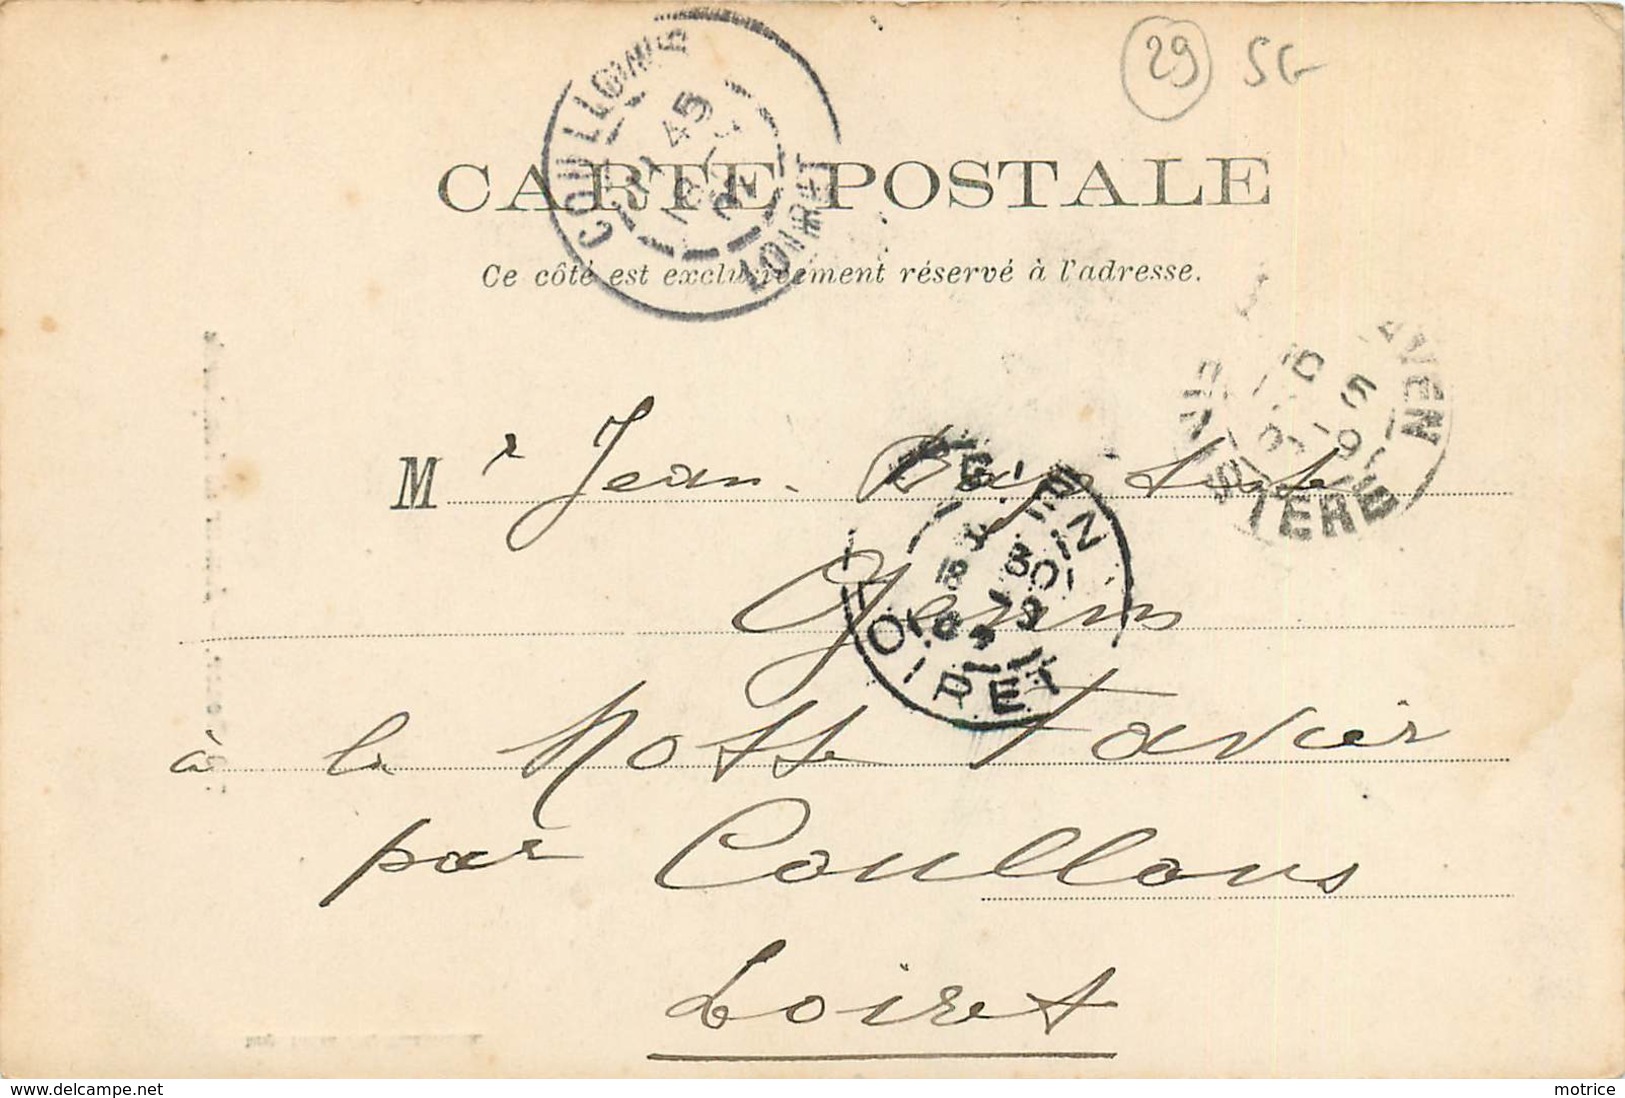 29 SG
COULLONS
10 45
LOIRET
CARTE POSTALE
Ce côté est exclusivement réservé à l'adresse.
AVEN
FINISTERE
Mr Jean-Baptiste
GIEN
LOIRET
à la Motte Tavier
par Coullons
Loiret
www.delcampe.net
motrice